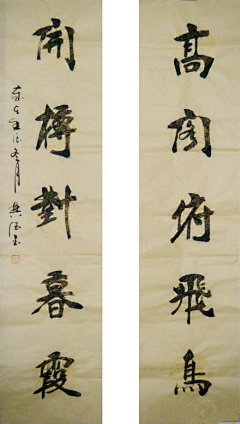 高閣俯飛鳥
開樽對暮霞